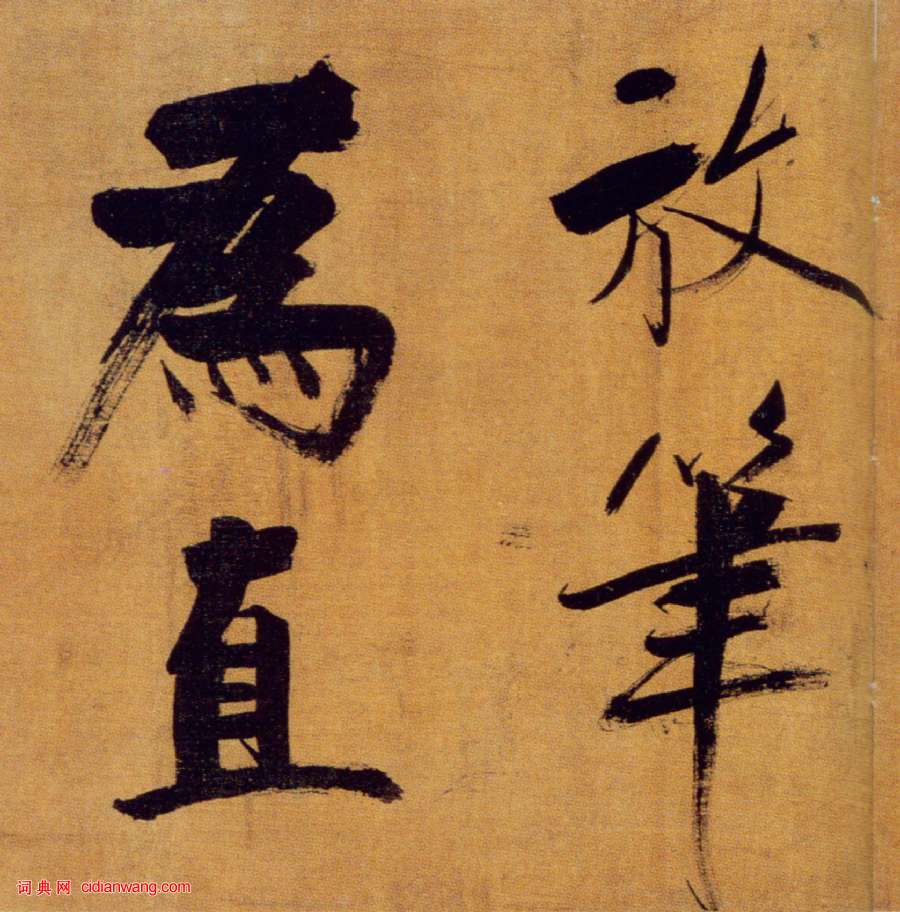 放筆
為直
词典网 cidianwang.com